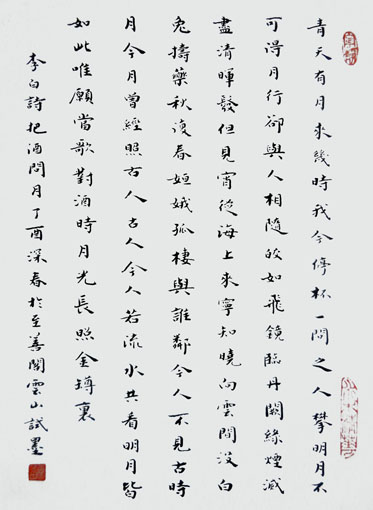 青天有月來幾時我今停杯一問之人攀明月不
可得月行卻與人相隨皎如飛鏡臨丹闕綠煙滅
盡清暉發但見宵從海上來寧知曉向雲間沒白
兔擣藥秋復春姮娥孤棲與誰鄰今人不見古時
月今月曾經照古人古人今人若流水共看明月皆
如此唯願當歌對酒時月光長照金樽裏
李白詩把酒問月丁酉深春於至善閣雲山試墨